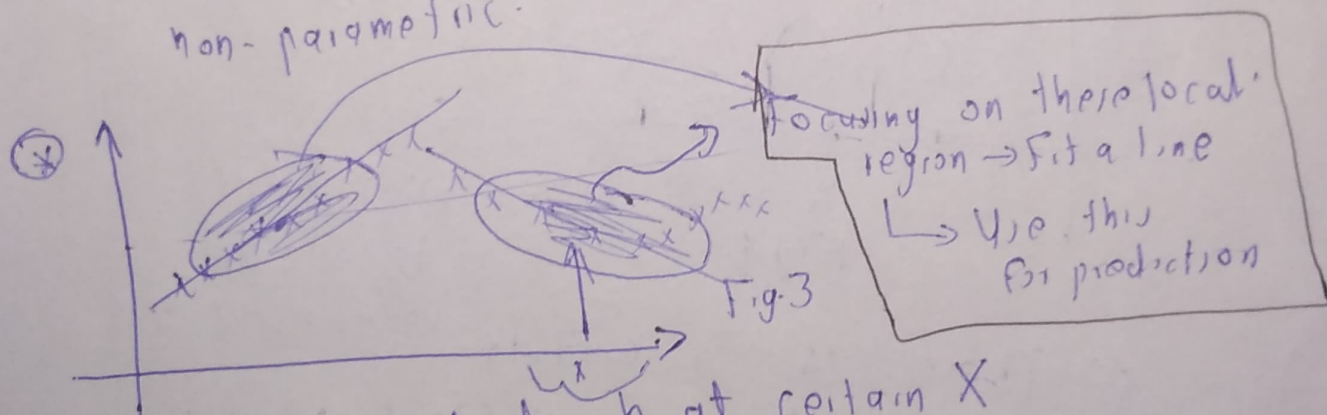 non-parametric.
Focusing on these local
region → Fit a line
↳ Use this
for prediction
Fig.3
x
h at certain X